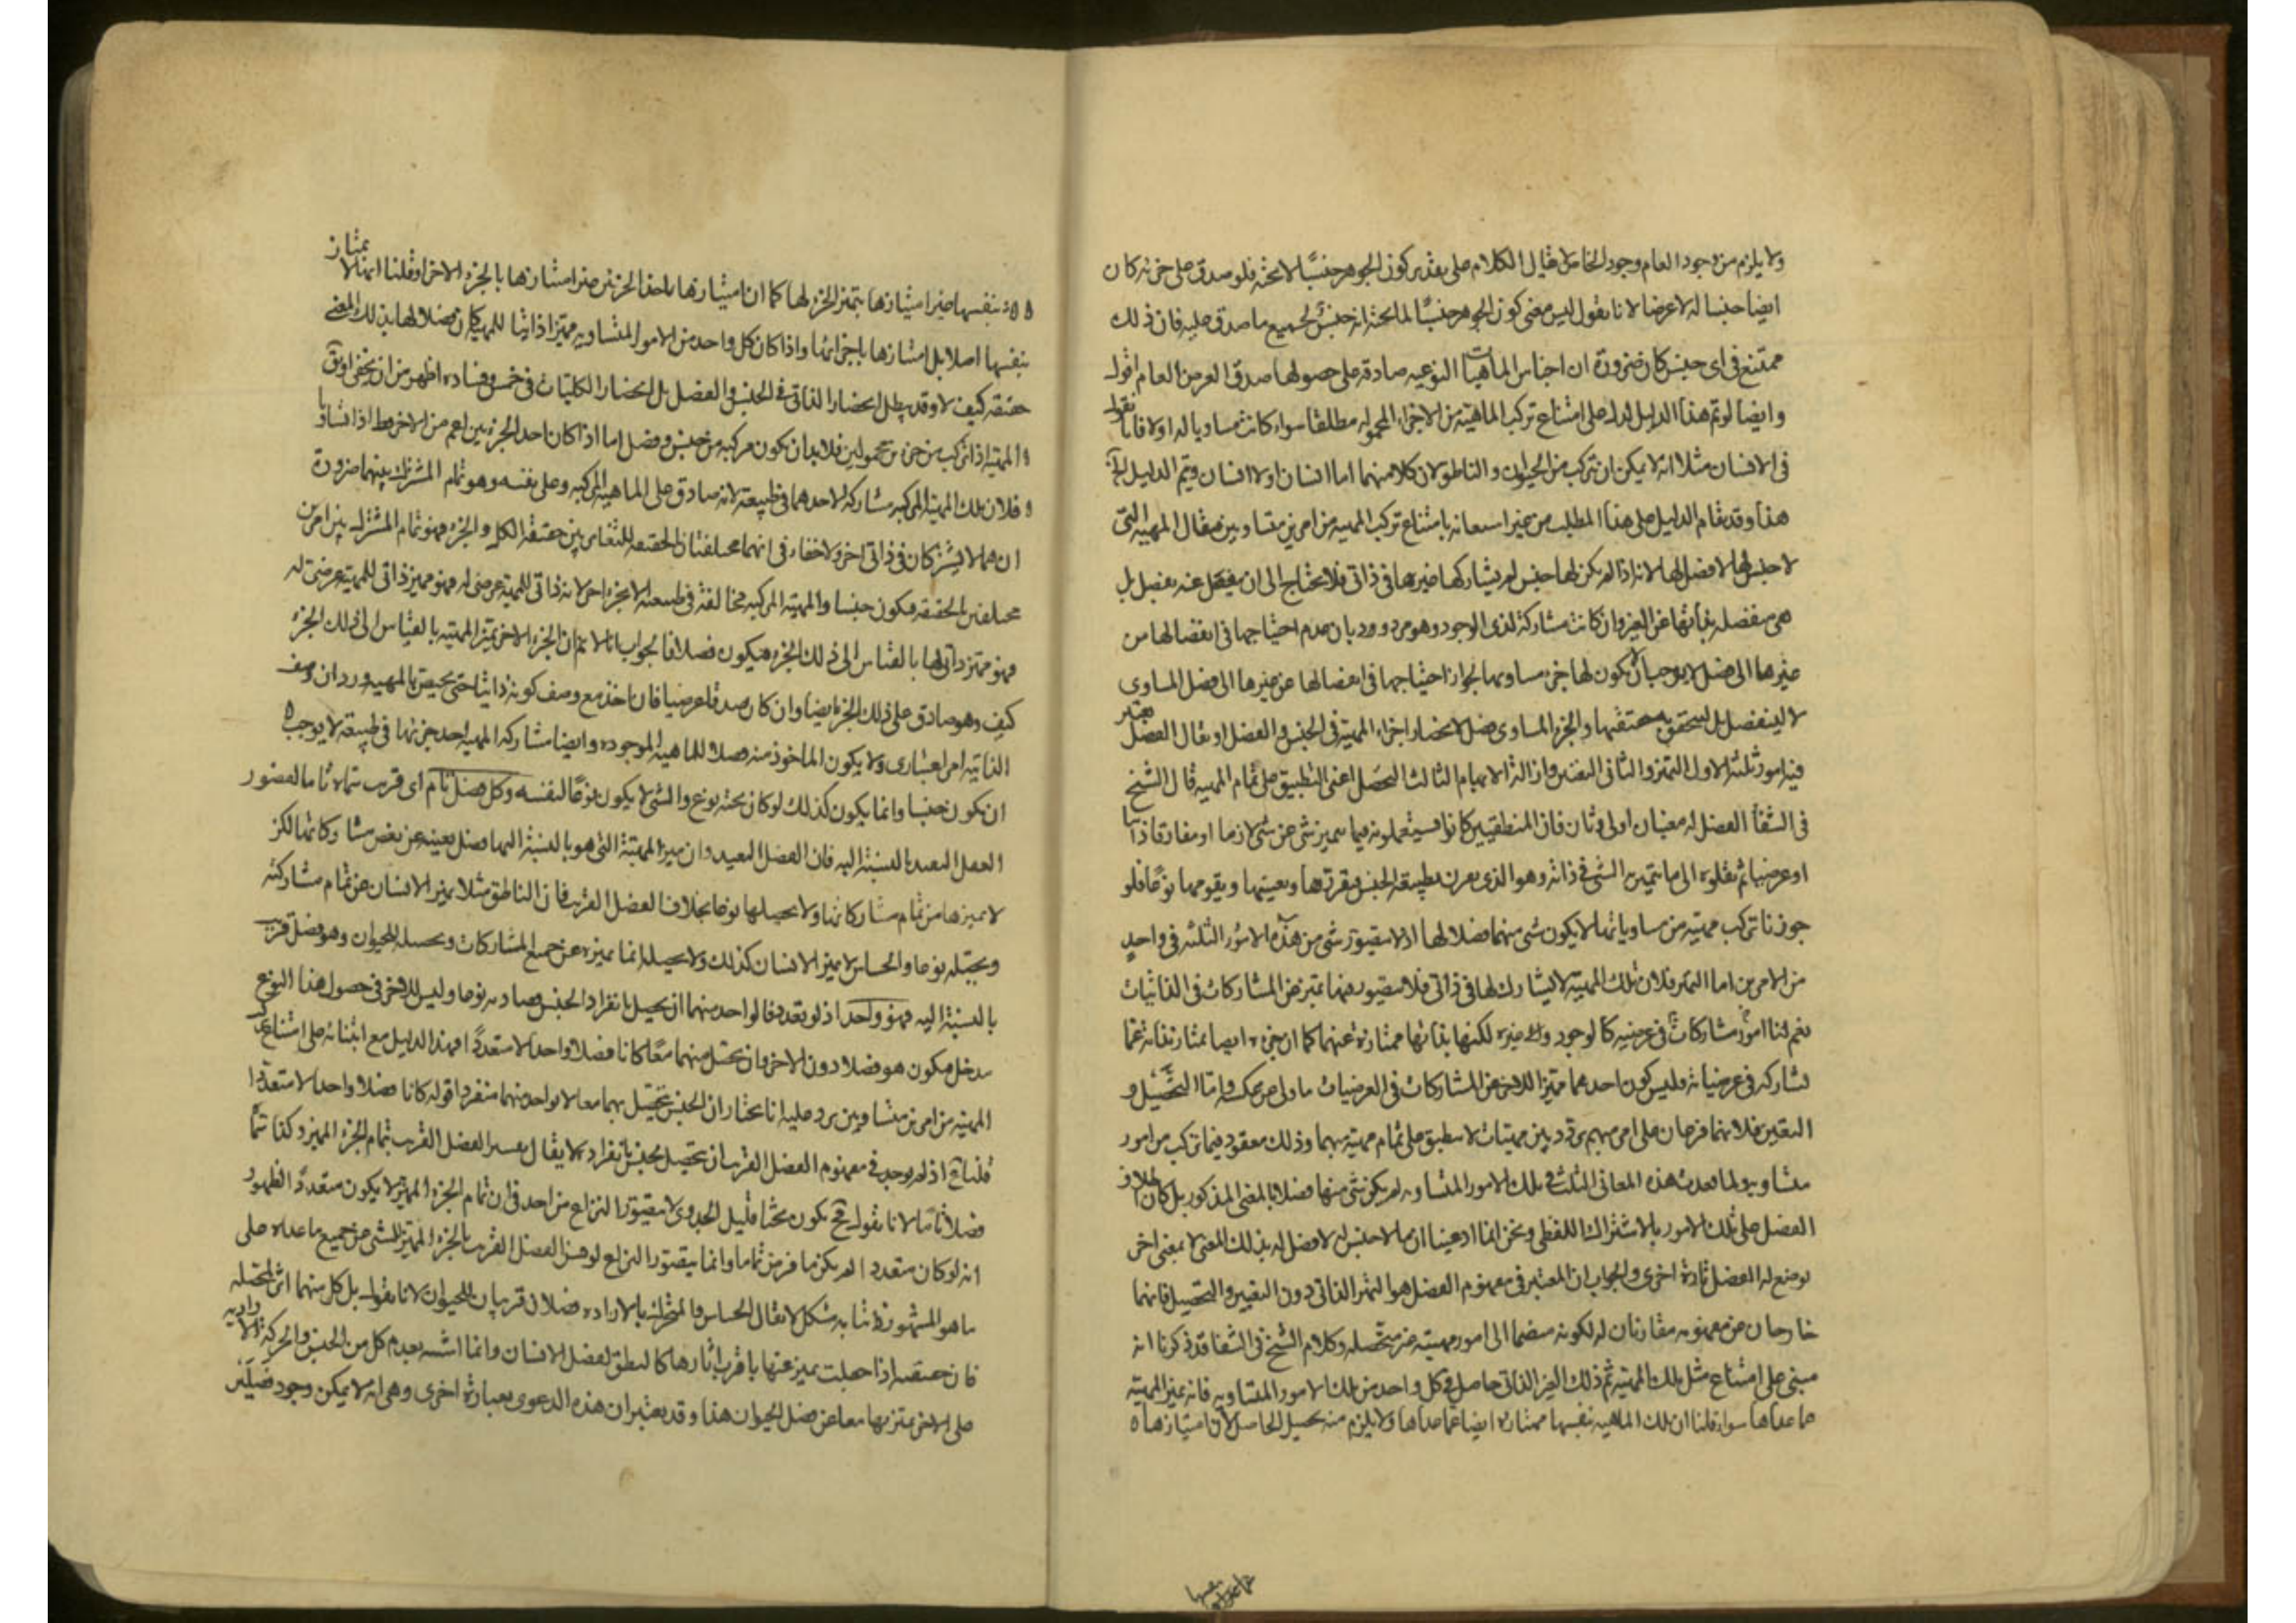 ولا يلزم من وجود العام وجود الخاص لا يقال الكلام على تقدير كون الجوهر جنسًا لا تحته فلو صدق على جزئه كان
ايضا جنسا له لا عرضا لانا نقول ليس معنى كون الجوهر جنسًا لما تحته انه جنس لجميع ما صدق عليه فان ذلك
ممتنع فى اى جنس كان ضرورة ان اجناس الماهيات النوعيه صادقه على فصولها صدق العرض العام اقول
وايضا لو تم هذا الدليل لدل على امتناع تركب الماهيته من الاجزاء المحموله مطلقا سواء كانت مساويا له اولا فانا نقول
فى الانسان مثلا انه لا يمكن ان يتركب من الحيوان والناطق لان كلا منهما اما انسان او لا انسان ويتم الدليل
هذا وقد يقام الدليل على هذا المطلب من غير استعانه بامتناع تركب المهيه من امرين متساويين فيقال المهيه التى
لا جنس لها لا فصل لها لانه اذا لم يكن لها جنس لم يشاركها غيرها فى ذاتى فلا تحتاج الى ان ينفصل عنه بفصل بل
هى منفصله بذاتها عن الغير وان كانت مشاركة لذى الوجود وهو مردود بان عدم احتياجها فى انفصالها من
غيرها الى فصل لا يوجب ان لا يكون لها جزء مساو بها لجواز احتياجها فى انفصالها عن غيرها الى فصل المساوى
لا لينفصل بل لتحقق به حقيقتها والجزء المساوى فصل لانحصار اجزاء المهية فى الجنس والفصل او يقال الفصل يعتبر
فيه امور ثلثه الاول التميز والثانى التعين وازالة الابهام الثالث التحصل اعنى التطبيق على تمام المهيه قال الشيخ
فى الشفا الفصل له معنيان اولى وثان فان المنطقيين كانوا يستعملونه فيما يتميز به شى عن شى لازما او مفارقا ذاتيا
او عرضيا ثم نقلوه الى ما يتميز به الشى فى ذاته وهو الذى يقرن بطبيعة الجنس فيفرزها ويعينها ويقومها نوعًا فلو
جوزنا تركب مهيته من مساوياتها لا يكون شى منهما فصلا لها اذ لا يتصور شى من هذه الامور الثلثه فى واحدٍ
من الامرين اما التميز فلان تلك المهيه لا يشارك لها فى ذاتى فلا يتصور فيها تميز عن المشاركات فى الذاتيات
نعم لنا امور مشاركات فى عرضيه كالوجود وغيره لكنها بذاتها ممتازة عنهما كما ان جزءه ايضا ممتاز بذاته عما
تشاركه فى عرضياته وليس كون احدهما مميزا للاخر عن المشاركات فى العرضيات باولى من عكسه واما التحصيل و
التعين فلانهما فرعان على امر مبهم يردد بين مهيات لا ينطبق على تمام مهيته بهما وذلك مفقود فيما تركب من امور
متساويه ولما تعددت هذه المعانى الثلث فى تلك الامور المتساويه لم يكن شى منها فصلا بالمعنى المذكور بل كان اطلاق
الفصل على تلك الامور بالاشتراك اللفظى ونحن انما ادعينا ان ما لا جنس له لا فصل له بذلك المعنى لا بمعنى اخر
يوضع له الفصل تارة اخرى والجواب ان المعتبر فى مفهوم الفصل هو التميز الذاتى دون التعيين والتحصيل فانهما
خارجان عن مفهومه مقارنان له لكونه منضما الى امور مبهمة غير متحصله وكلام الشيخ فى الشفا قد ذكرنا انه
مبنى على امتناع مثل تلك المهيه ثم ذلك الميز الذاتى حاصل فى كل واحد من تلك الامور المتساويه فانه يميز المهيه
عما عداها سواء قلنا ان تلك الماهيه بنفسها ممتازه ايضا عما عداها ولا يلزم منه تحصيل الحاصل لان امتيازها
بنفسها غير امتيازها بتميز الجزء لها كما ان امتيازها باحد الجزئين غير امتيازها بالجزء الاخر او قلنا انها لا يمتاز
بنفسها اصلا بل امتيازها باجزائها واذا كان كل واحد من الامور المتساويه مميزا ذاتيا للمهيه كان فصلا لها بذلك المعنى
حقيقه كيف لا وقد يبطل انحصار الذاتى فى الجنس والفصل بل انحصار الكليات فى خمس وفساده اظهر من ان يخفى او يق
المهيه اذا تركب من جزئين محمولين فلا بد ان يكون مركبه من جنس وفصل اما اذا كان احد الجزئين اعم من الاخر فظ اذا تساويا
فلان تلك المهية المركبه مشاركه لاحدهما فى طبيعته لانه صادق على الماهيه المركبه وعلى نفسه وهو تمام المشترك بينهما ضرورة
انهما لا يشتركان فى ذاتى اخر ولا خفاء فى انهما مختلفتان بالحقيقه للتغاير بين حقيقة الكل والجزء فهو تمام المشترك بين امرين
مختلفين بالحقيقه فيكون جنسا والمهية المركبه مخالفة فى طبيعته الاجزاء اخر لانه ذاتى للمهيه عرضى له فهو مميز ذاتى للمهية عرضى له
فهو مميز ذاتى لها بالقياس الى ذلك الجزء فيكون فصلا فالجواب انا لا نم ان الجزء الاخر يميز المهيته بالقياس الى ذلك الجزء
كيف وهو صادق على ذلك الجزء ايضا وان كان صدقا عرضيا فان اخذ مع وصف كونه ذاتيا حتى يختص بالمهيه ورد ان وصف
الذاتيه امر اعتبارى ولا يكون الماخوذ منه فصلا للماهيه الموجوده وايضا مشاركه المهيه لاحد جزئها فى طبيعته لا يوجب
ان يكون جنسا وانما يكون كذلك لو كان تحته نوع والشى لا يكون نوعًا لنفسه وكل فصل تام اى قريب
الفصل البعيد بالنسبة اليه فان الفصل البعيد وان ميز المهيتة التى هو بالنسبة اليها فصل بعينه عن بعض مشاركاتها لكن
لا يميزها من تمام مشاركاتها ولا يحصلها نوعا بخلاف الفصل القريب فان الناطق مثلا يميز الانسان عن تمام مشاركته
ويحصله نوعا والحساس لا يميز الانسان كذلك ولا يحصله انما يميزه عن جميع المشاركات ويحصله للحيوان وهو فصل قريب
بالنسبة اليه فهو واحد اذ لو تعدد فالواحد منهما ان يحصل بانفراد الجنس وصار به نوعا وليس للاخر فى حصول هذا النوع
مدخل فيكون هو فصلا دون الاخر وان يحصل منهما معًا كانا فصلا واحدا لا متعددًا فهذا الدليل مع ابتنائه على امتناع
المهيه من امرين متساويين يرد عليه انا نختار ان الجنس يتحصل بهما معا لا بواحد منهما منفردا قوله كانا فصلا واحدا لا متعددا
قلنا مم اذ لم يوجد فى مفهوم الفصل القريب ان يتحصل الجنس بانفراده لا يقال يفسر الفصل القريب بتمام الجزء المميز وكذا
فصلا تاما لانا نقول فح يكون بحثا قليل الجدوى لا يتصور النزاع من احد فى ان تمام الجزء المميز لا يكون متعددًا لظهور
انه لو كان متعددا لم يكن ما فرض تماما وانما يتصور النزاع لو فسر الفصل القريب بالجزء المميز للشى عن جميع ما عداه على
ما هو المشهور لا يقال الحساس والمتحرك بالاراده فصلان قريبان للحيوان لانا نقول بل كل منهما اثر لفصله
فان حقيقته اذا جهلت يميز عنها باقرب اثارها كالنطق لفصل الانسان وانما اشتبه تقدم كل من الحس والحركة الاراديه
على الاخر يميز بهما معا عن فصل الحيوان هذا وقد يعتبر ان هذه الدعوى بعبارة اخرى وهى انه لا يمكن وجود فصلين